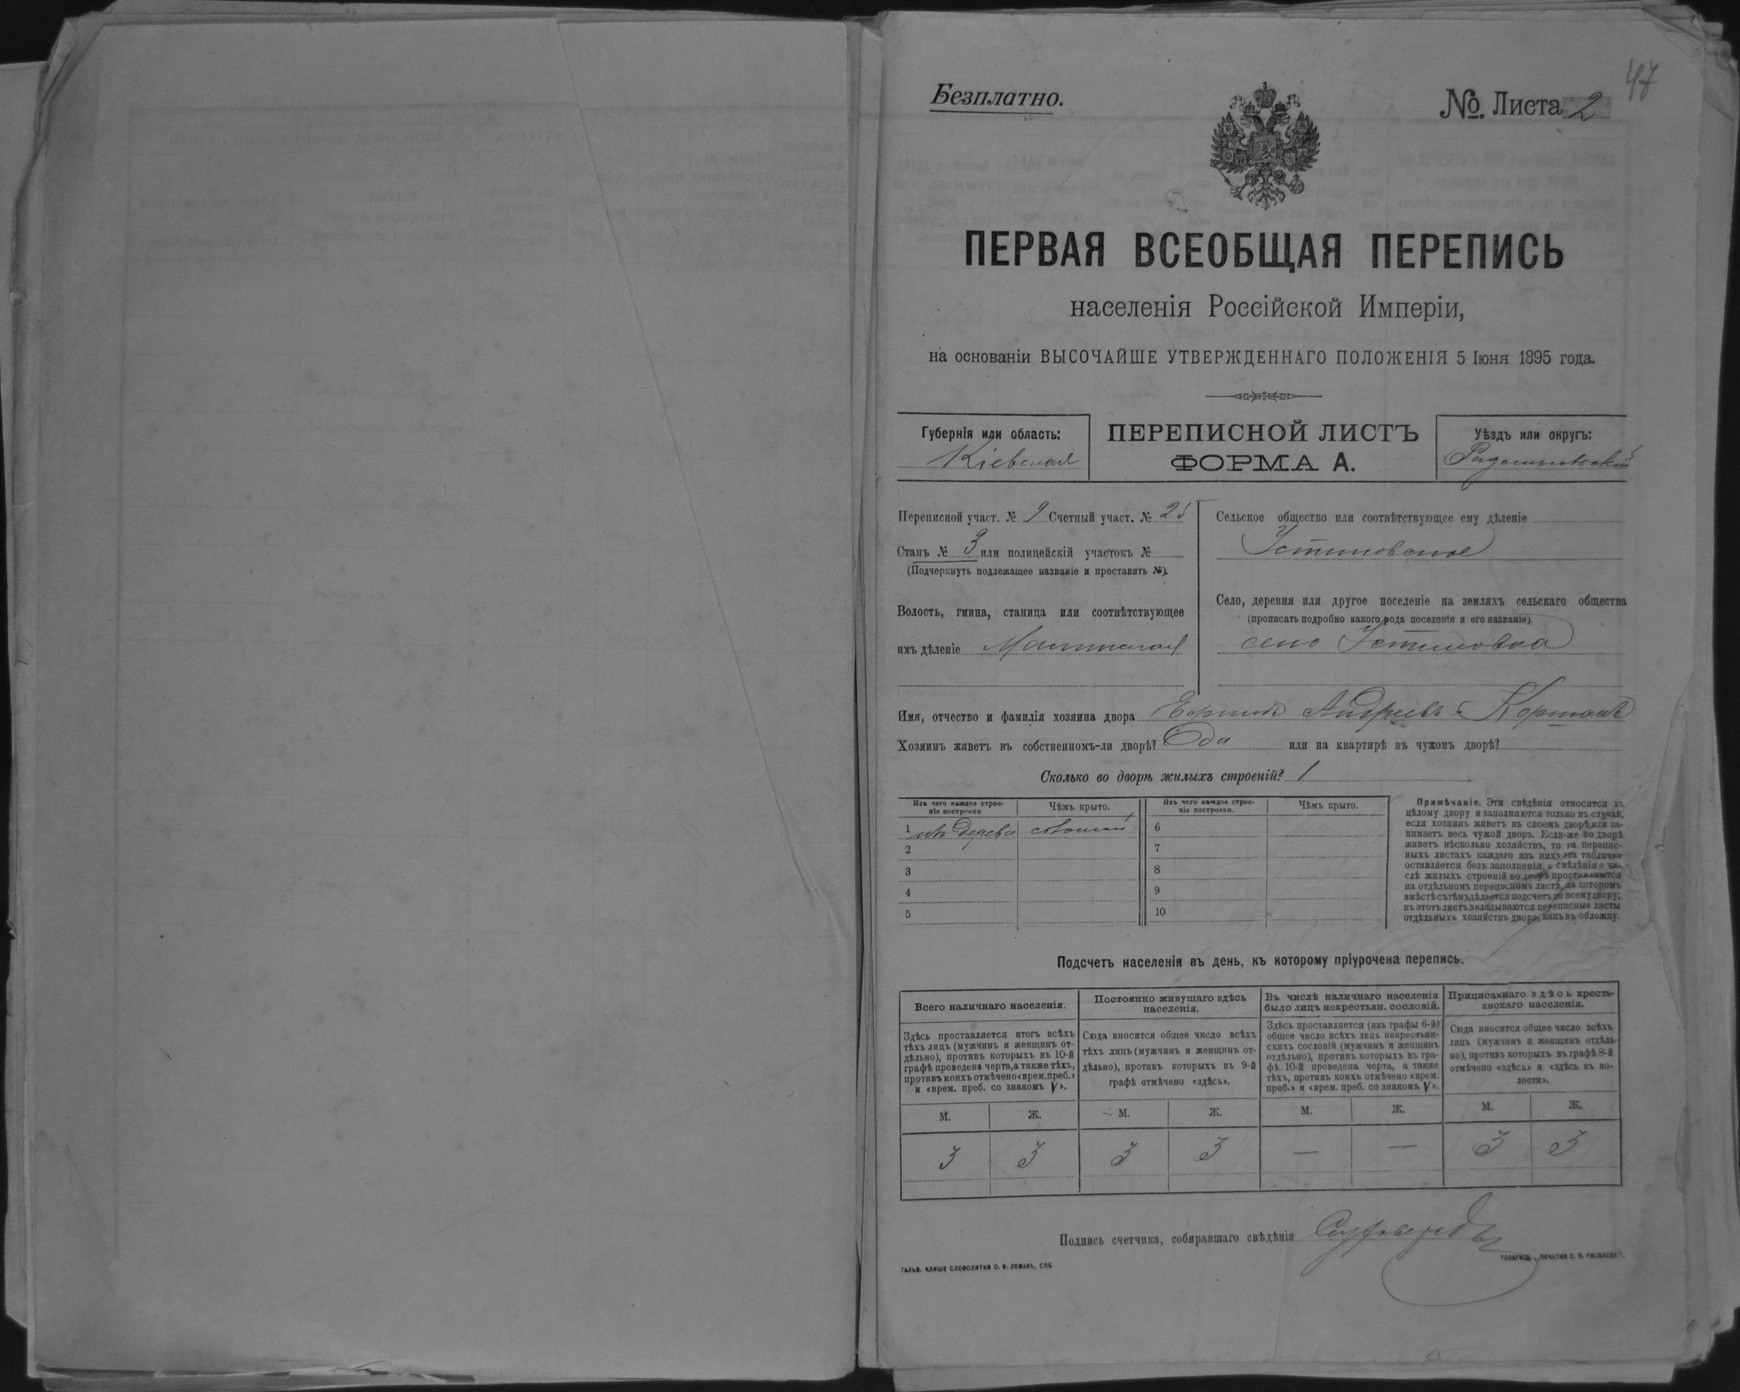 47
Безплатно.
№. Листа 2
ПЕРВАЯ ВСЕОБЩАЯ ПЕРЕПИСЬ
населенія Россійской Имперіи,
на основаніи ВЫСОЧАЙШЕ УТВЕРЖДЕННАГО ПОЛОЖЕНІЯ 5 Іюня 1895 года.
Губернія или область:
Кіевская
ПЕРЕПИСНОЙ ЛИСТЪ
ФОРМА А.
Уѣздъ или округъ:
Радомысльскій
Переписной участ. № 9 Счетный участ. № 25
Станъ № 3 или полицейскій участокъ №
(Подчеркнуть подлежащее названіе и проставить №).
Волость, гмина, станица или соотвѣтствующее
имъ дѣленіе
Сельское общество или соотвѣтствующее ему дѣленіе
Устиновское
Село, деревня или другое поселеніе на земляхъ сельскаго общества
(прописать подробно какого рода поселеніе и его названіе)
село Устиновка
Имя, отчество и фамилія хозяина двора Андреевъ
Хозяинъ живетъ въ собственномъ-ли дворѣ? Да или на квартирѣ въ чужомъ дворѣ?
Сколько во дворѣ жилыхъ строеній? 1
Изъ чего каждое строе-
ніе построено
Чѣмъ крыто.
1 изъ дерева соломой
2
3
4
5
Изъ чего каждое строе-
ніе построено.
Чѣмъ крыто.
6
7
8
9
10
Примѣчаніе. Эти свѣдѣнія относятся къ
цѣлому двору и заполняются только въ случаѣ,
если хозяинъ живетъ въ своемъ дворѣ или за-
нимаетъ весь чужой дворъ. Если-же во дворѣ
живетъ нѣсколько хозяйствъ, то на перепис-
ныхъ листахъ каждаго изъ нихъ эта табличка
оставляется безъ заполненія, а свѣдѣнія о чи-
слѣ жилыхъ строеній во дворѣ проставляются
на отдѣльномъ переписномъ листѣ, на которомъ
вмѣстѣ съ тѣмъ дѣлается подсчетъ по всему двору;
въ этотъ листъ вкладываются переписные листы
отдѣльныхъ хозяйствъ двора, какъ въ обложку.
Подсчетъ населенія въ день, къ которому пріурочена перепись.
Всего наличнаго населенія.
Здѣсь проставляется итогъ всѣхъ
тѣхъ лицъ (мужчинъ и женщинъ от-
дѣльно), противъ которыхъ въ 10-й
графѣ проведена черта, а также тѣхъ,
противъ коихъ отмѣчено «врем. преб.»
и «врем. преб. со знакомъ V».
М. Ж.
3 3
Постоянно живущаго здѣсь
населенія.
Сюда вносится общее число всѣхъ
тѣхъ лицъ (мужчинъ и женщинъ от-
дѣльно), противъ которыхъ въ 9-й
графѣ отмѣчено «здѣсь».
М. Ж.
3 3
Въ числѣ наличнаго населенія
было лицъ некрестьян. сословій.
Здѣсь проставляется (изъ графы 6-й)
общее число всѣхъ лицъ некрестьян-
скихъ сословій (мужчинъ и женщинъ
отдѣльно), противъ которыхъ въ гра-
фѣ 10-й проведена черта, а также
тѣхъ, противъ коихъ отмѣчено «врем.
преб.» и «врем. преб. со знакомъ V».
М. Ж.
— —
Приписаннаго здѣсь кресть-
янскаго населенія.
Сюда вносится общее число всѣхъ
лицъ (мужчинъ и женщинъ отдѣль-
но), противъ которыхъ въ графѣ 8-й
отмѣчено «здѣсь» и «здѣсь въ во-
лости».
М. Ж.
3 3
Подпись счетчика, собиравшаго свѣдѣнія
ГАЛЬВ. КЛИШЕ СЛОВОЛИТНИ О. И. ЛЕМАНЪ, СПБ
ТОВАРИЩ. „ПЕЧАТНЯ С. П. ЯКОВЛЕВА".